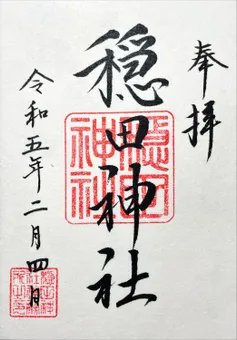 奉拝
穏田神社
令和五年二月四日
穏田
神社